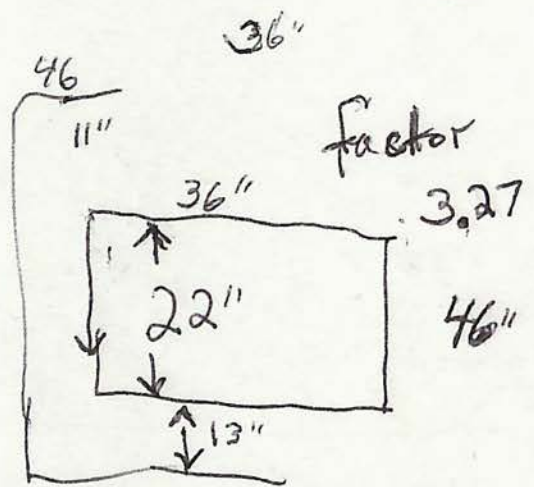 36"
46
11"
factor
36"
3.27
22"
46"
13"